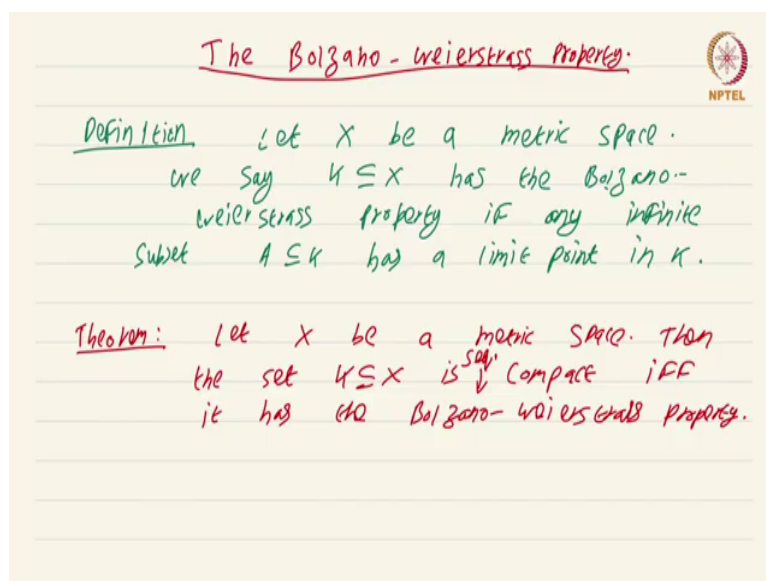 The Bolzano-Weierstrass Property.
NPTEL
Definition Let X be a metric space.
we say K ⊆ X has the Bolzano-
Weierstrass property if any infinite
subset A ⊆ K has a limit point in K.
Theorem: Let X be a metric space. Then
the set K ⊆ X is seq. compact iff
it has the Bolzano-Weierstrass property.